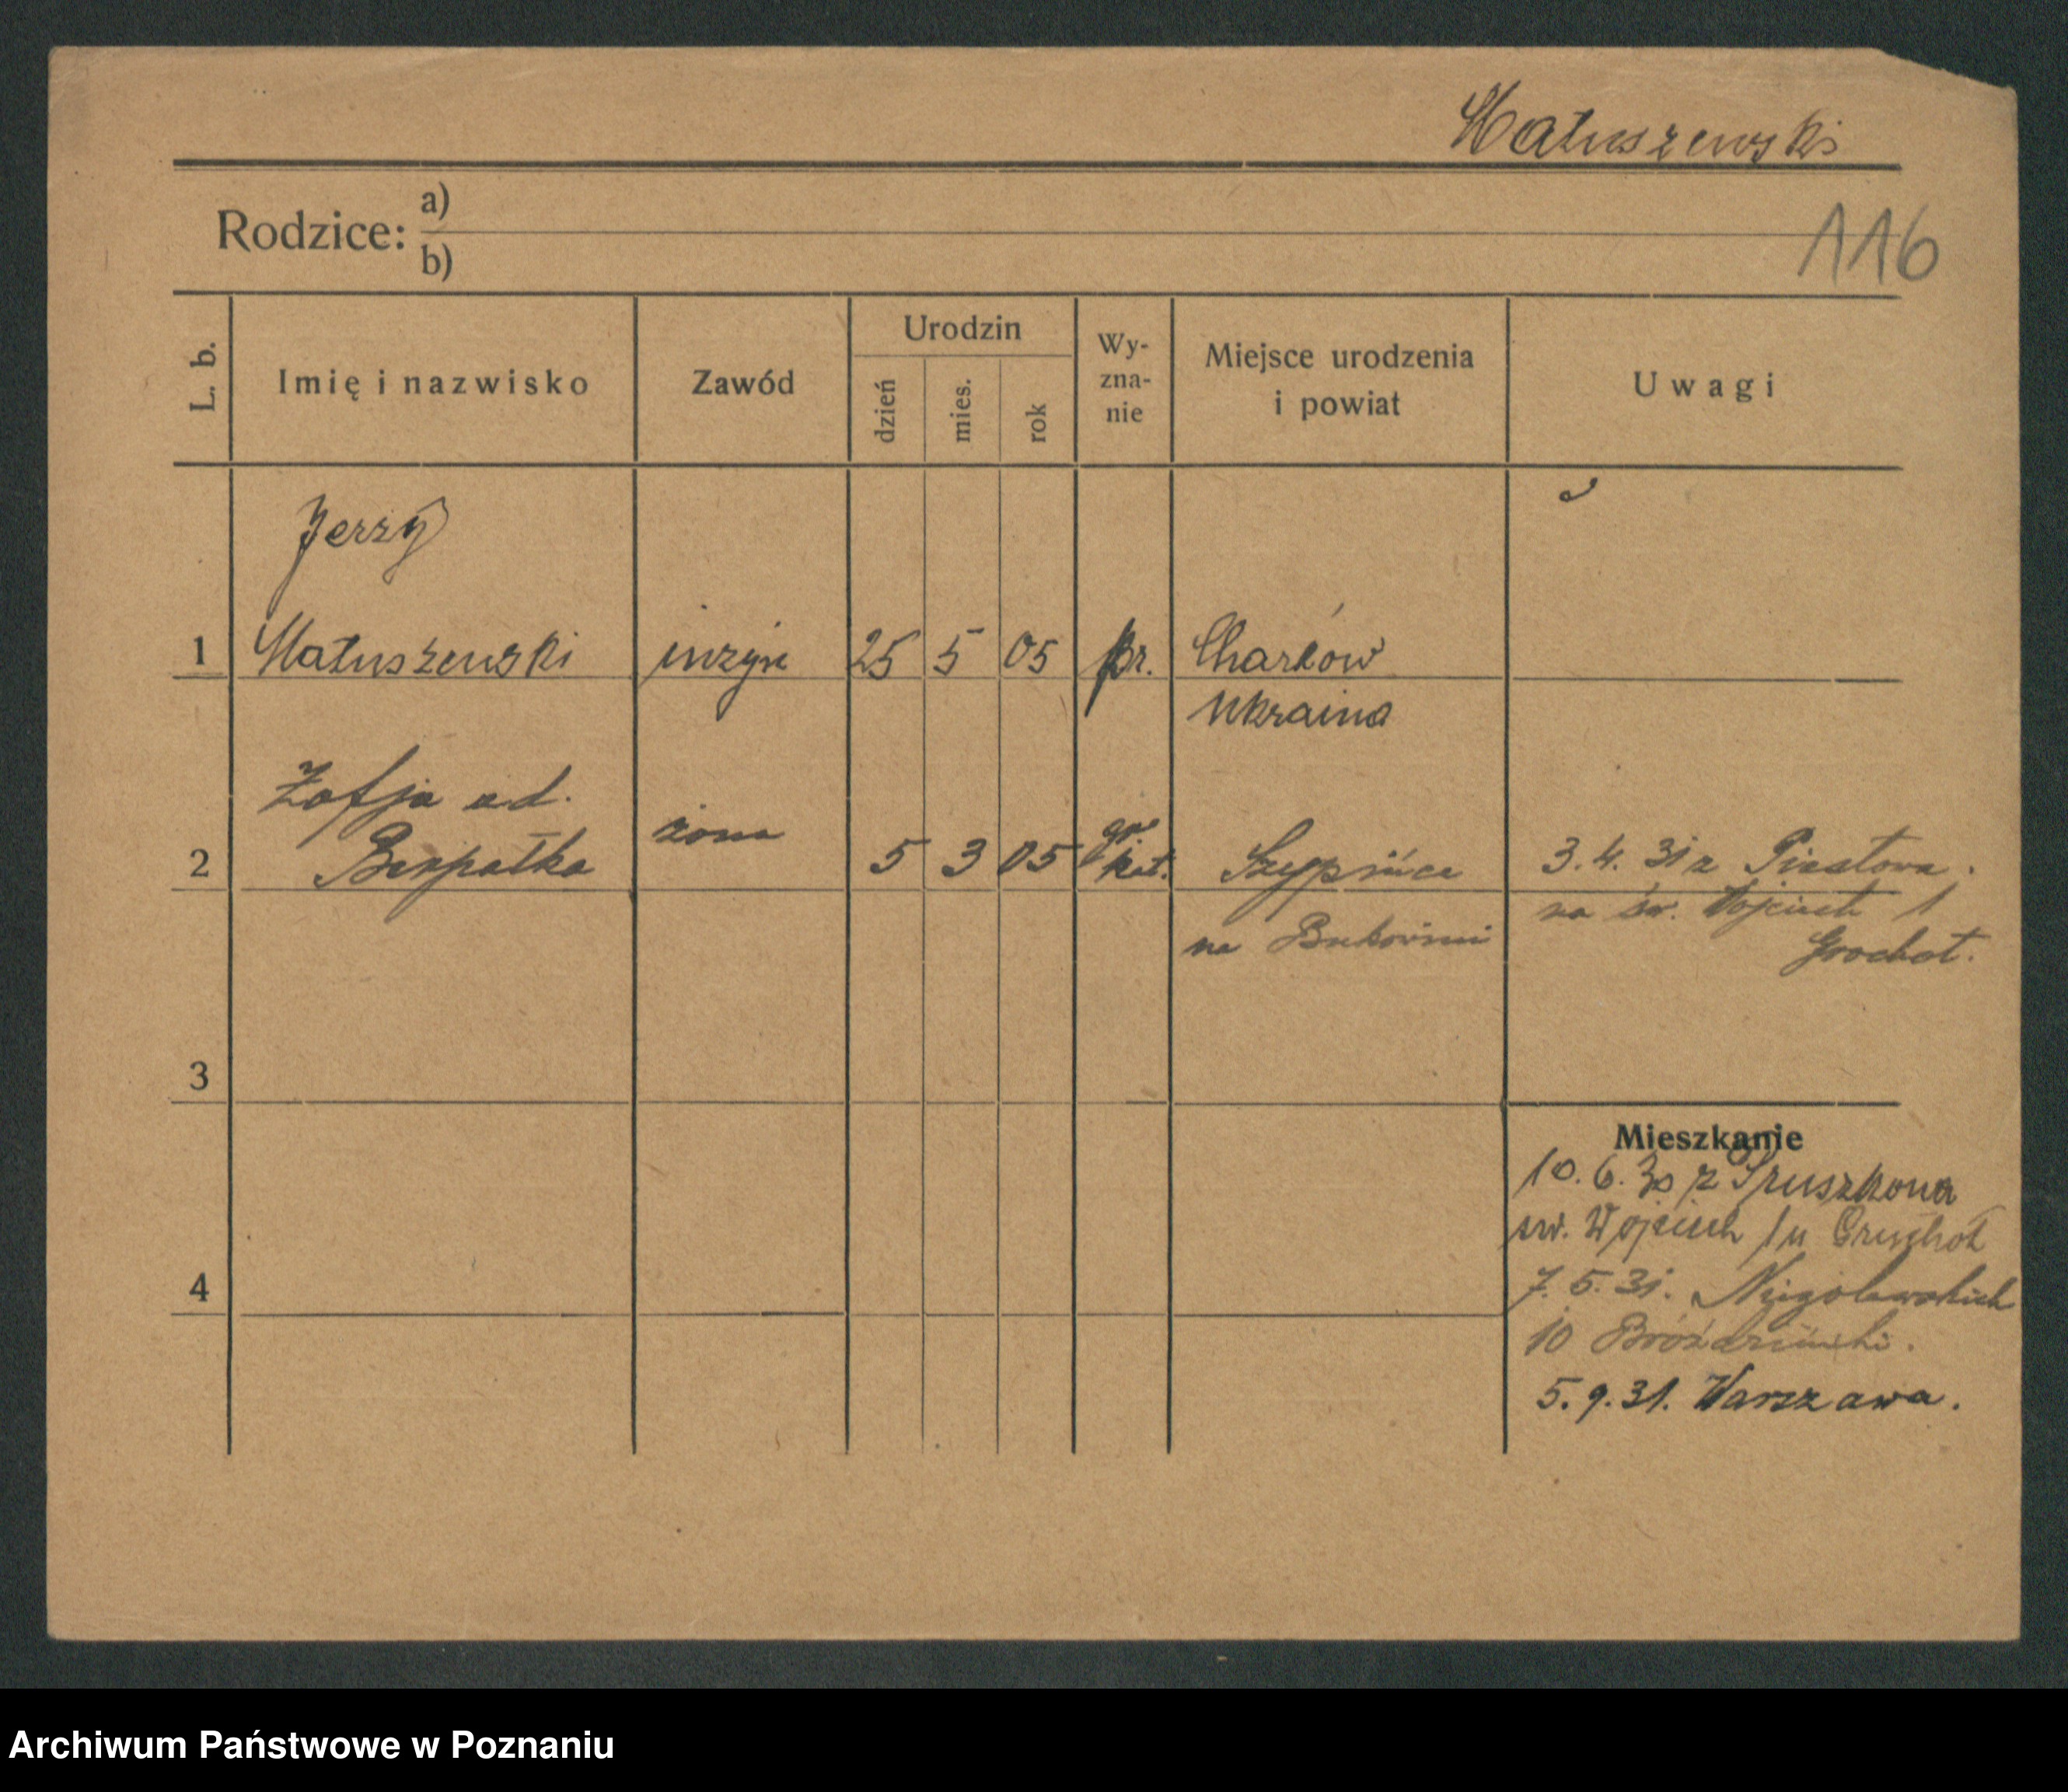 Matuszewski
Rodzice: a)
b)
116
L. b. Imię i nazwisko Zawód Urodzin dzień mies. rok Wy-zna-nie Miejsce urodzenia i powiat Uwagi
Jerzy
1 Matuszewski inżyn 25 5 05 pr. Charków
Ukraina
Zofja ud.
2 żona 5 3 05 gr kat.
na Bukowinie
3.4.31 z Piastowa.
na św. Wojciech 1
Grochot.
3
4
Mieszkanie
10.6.30 z Pruszkowa
św. Wojciech 1 u
7.5.31. Niegolewskich
10
5.9.31. Warszawa.
Archiwum Państwowe w Poznaniu